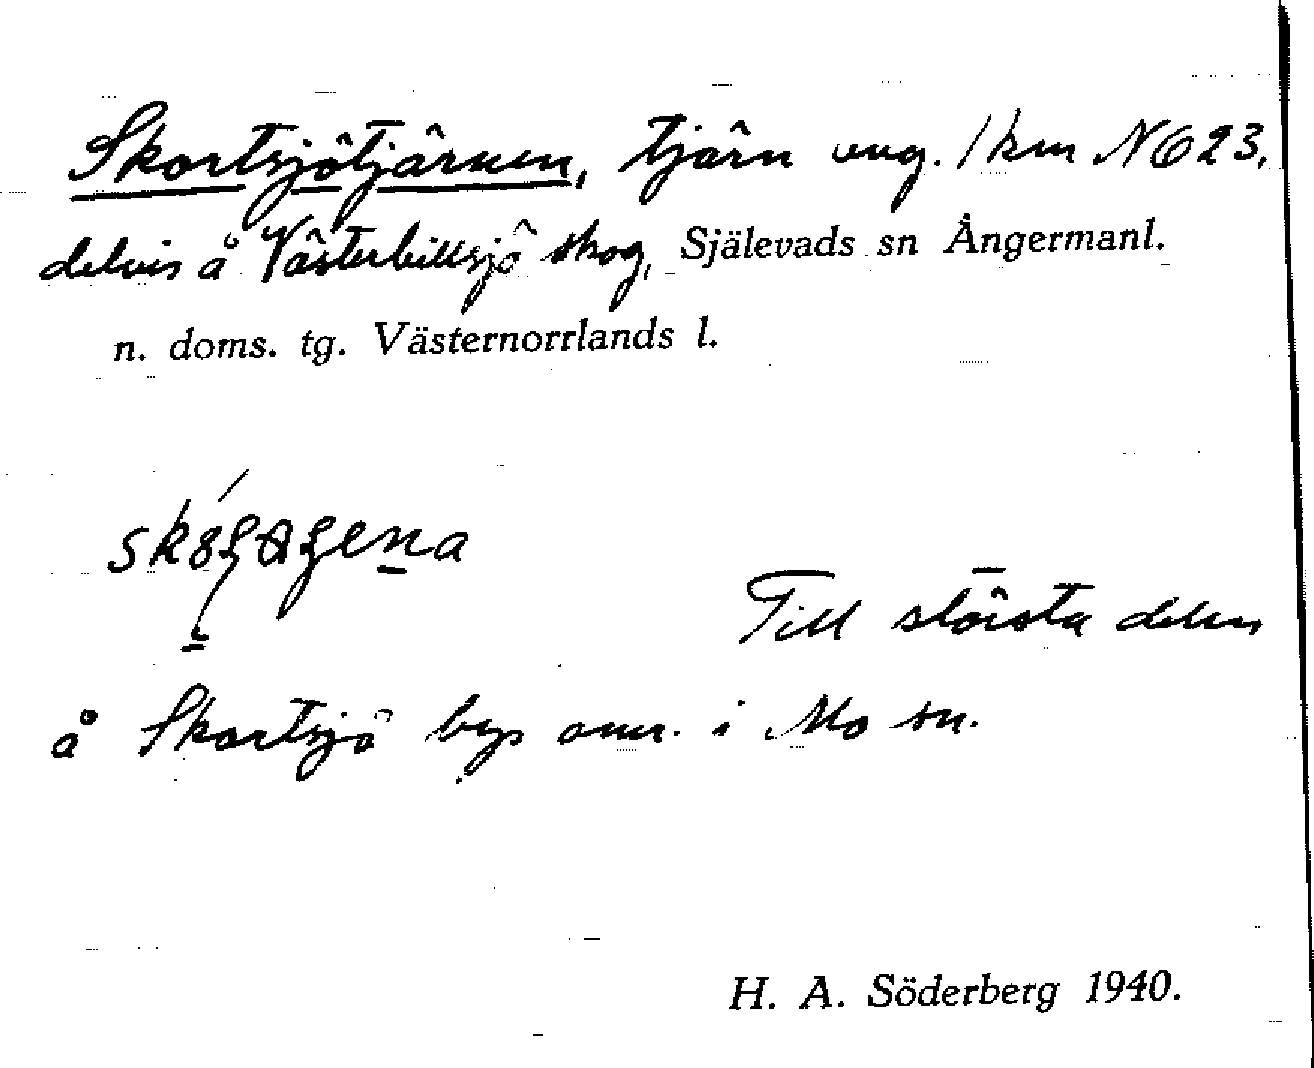 Skortsjötjärnen, tjärn ung. 1 km NO 23,
delvis å Västerbillsjö skog, Själevads sn Ångermanl.
n. doms. tg. Västernorrlands l.
Till största delen
å Skortsjö bys omr. i Mo sn.
H. A. Söderberg 1940.